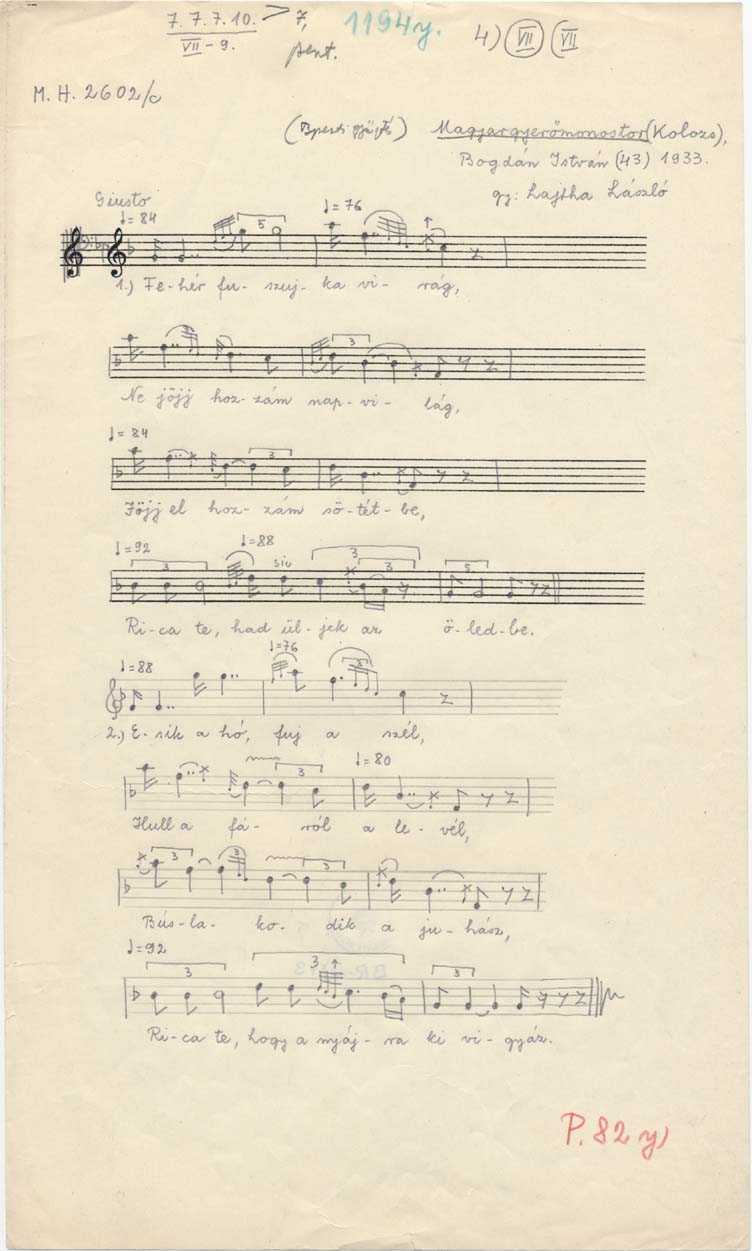 7. 7. 7. 10. > 7,
VII - 9.
pent.
1194y.
4) VII (VII
M. H. 2602/c
Magyargyerőmonostor (Kolozs),
Bogdán István (43) 1933.
gy: Lajtha László
Giusto
♩= 84
♩= 76
5
1.) Fe-hér fu- szuj- ka vi- rág,
3
3
Ne jöjj hoz- zám nap- vi- lág,
♩= 84
3
Jöjj el hoz- zám sö-tét-be,
♩= 92
♩= 88
3
sic
3
3
5
Ri-ca te, had ül- jek az ö-led-be.
♩= 88
♩= 76
3
2.) E- sik a hó, fuj a szél,
♩= 80
3
Hull a fá- ról a le- vél,
3
3
3
Bús-la- ko- dik a ju-hász,
♩= 92
3
3
3
Ri-ca te, hogy a nyáj- ra ki vi- gyáz.
P. 82 y)